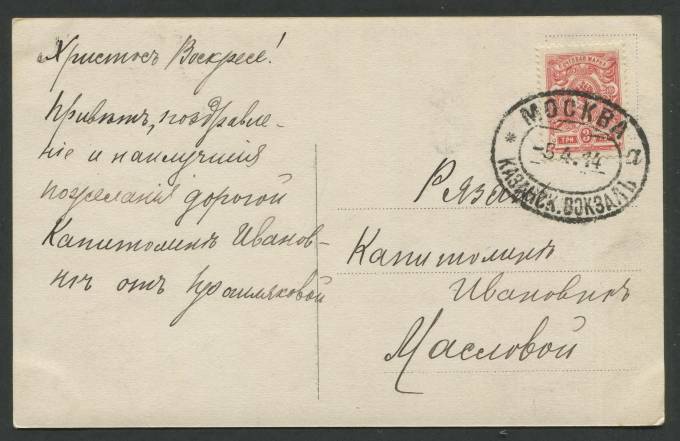 Христосъ Воскресе!
Привѣтъ, поздравле-
ніе и наилучшія
пожеланія дорогой
Капитолинѣ Иванов-
нѣ отъ
ПОЧТОВАЯ МАРКА
ТРИ 3
МОСКВА
-5.4.14
КАЗАНСК. ВОКЗАЛЪ
Рязань
Капитолинѣ
Ивановнѣ
Масловой